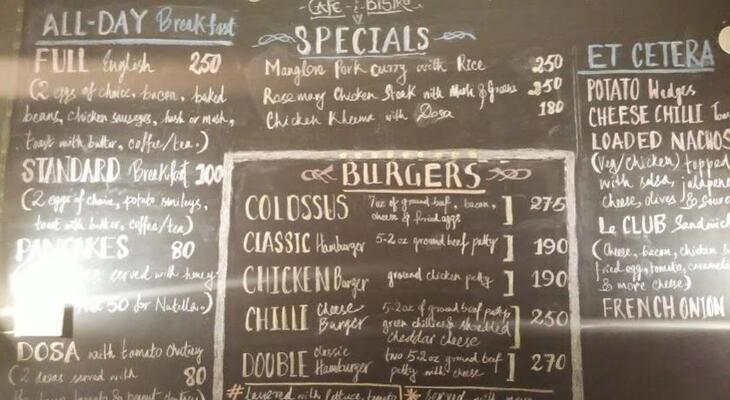 CAFE - BISTRO
ALL-DAY Breakfast
FULL English 250
(2 eggs of choice, bacon, baked
beans, chicken sausages, hash or mash,
toast with butter, coffee/tea.)
STANDARD Breakfast 200
(2 eggs of choice, potato smileys,
toast with butter, coffee/tea)
PANCAKES 80
served with honey
50 for Nutella.)
DOSA with tomato chutney
(2 dosas served with 80
tomato & peanut chutney)
SPECIALS
Manglore Pork curry with Rice 250
Rosemary Chicken Steak with Mash & Greens 250
Chicken Kheema with Dosa 180
BURGERS
COLOSSUS 7oz of ground beef, bacon, cheese & fried eggs ] 275
CLASSIC Hamburger 5-2 oz ground beef patty ] 190
CHICKEN Burger ground chicken patty ] 190
CHILLI Cheese Burger 5-2oz of ground beef patty, green chillies & shredded cheddar cheese ] 250
DOUBLE classic Hamburger two 5-2oz ground beef patty with cheese ] 270
# layered with lettuce, tomato
* Served with
ET CETERA
POTATO Wedges
CHEESE CHILLI
LOADED NACHOS
(Veg/Chicken) topped
with salsa, jalapeno
cheese, olives & sour
Le CLUB Sandwich
(Cheese, bacon, chicken
fried egg, tomato, caramel
& more cheese)
FRENCH ONION